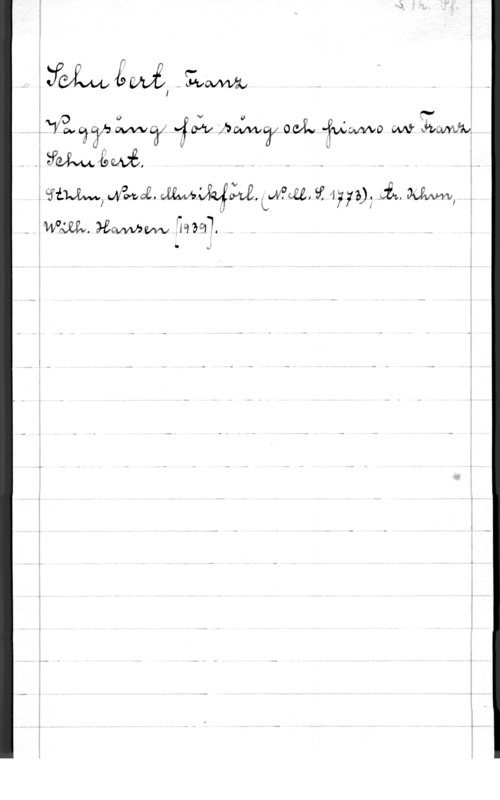 Schubert, Franz
Vaggsång för sång och piano av Franz
Schubert.
Sthlm, Nord. Musikförl. (N.M.S. 1773); tr. Khvn,
Wilh. Hansen [1939].